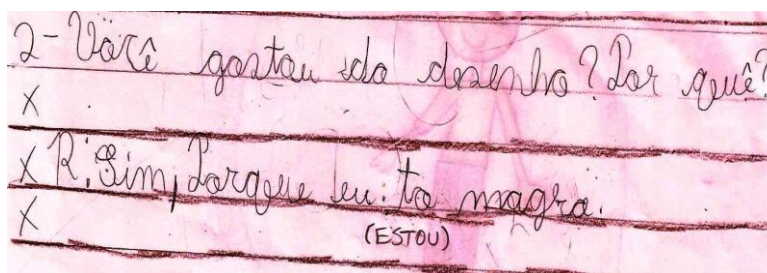 2- Você gostou do desenho? Por quê?
X
X R: Sim, Porque eu to magra.
X
(ESTOU)